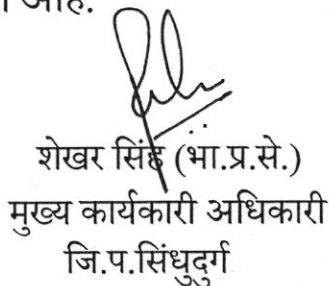 आहे.
शेखर सिंह (भा.प्र.से.)
मुख्य कार्यकारी अधिकारी
जि.प.सिंधुदुर्ग